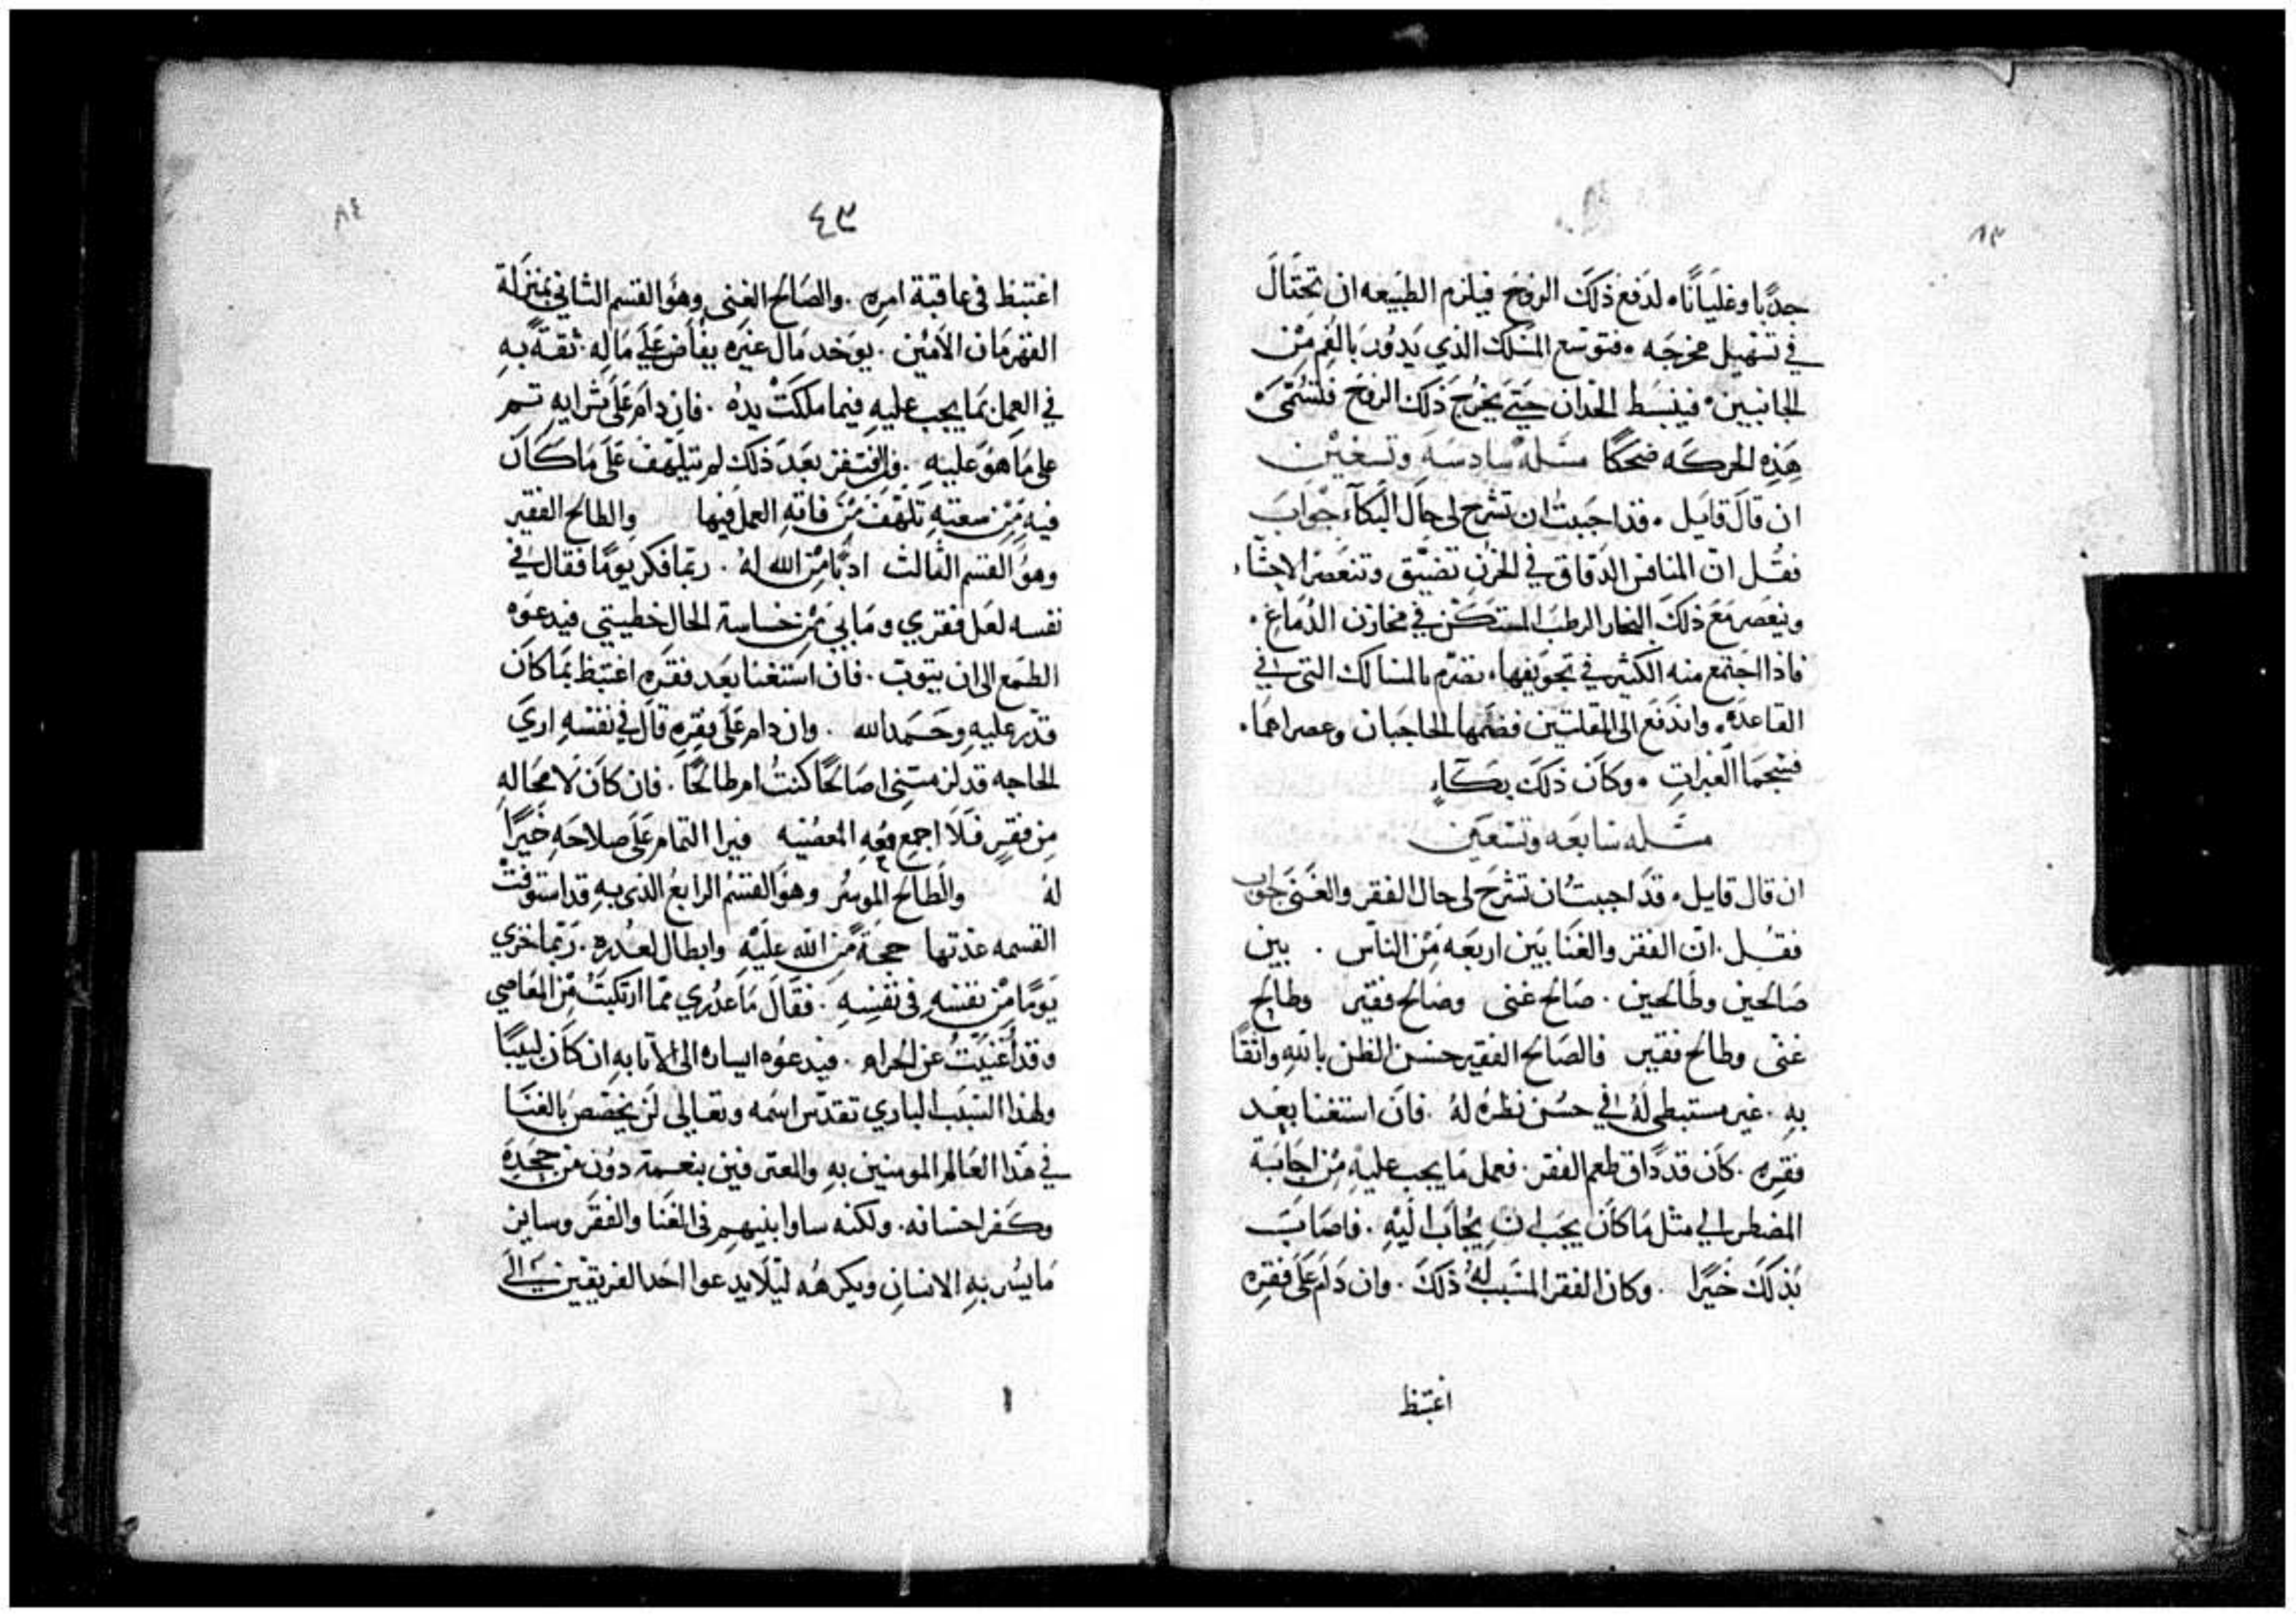 ٨٣
جدبا وغليانا، لدفع ذلك الروح فيلزم الطبيعه ان تحتال
في تسهيل مخرجه ، فتوسع المسلك الذي يدور بالفم من
الجانبين، فينبسط الخدان حتى يخرج ذلك الروح فلتسمى
هذه الحركه ضحكا مسله سادسه وتسعين
ان قال قايل ، قد احببت ان تشرح لى حال البكآء جواب
فقل ان المنافس الدقاق في الحزن تضيق وتنعصر الاحشاء
وينعصر مع ذلك البخار الرطب المستكن في مخازن الدماغ ،
فاذا اجتمع منه الكثير في تجويفها، بالمسالك التى في
القاعده، واندفع الى المقلتين فضمها الحاجبان وعصراهما،
العبرات ، وكان ذلك بكآء
مسله سابعه وتسعين
ان قال قايل ، قد احببت ان تشرح لى حال الفقر والغنى جواب
فقل . ان الفقر والغنا بين اربعه من الناس . بين
صالحين وطالحين . صالح غنى وصالح فقير وطالح
غنى وطالح فقير فالصالح الفقير حسن الظن بالله واثقا
به . غير مستبطى له في حسن نظره له . فان استغنا بعد
فقره . كان قد داق طعم الفقر . فعمل ما يجب عليه من اجابة
المضطر الى مثل ما كان يجب ان يجاب اليه . فاصاب
بذلك خيرا . وكان الفقر المسبب له ذلك . وان دام على فقره
اغتبظ
٨٤
٤٣
اغتبظ في عاقبة امره . والصالح الغنى وهو القسم الثاني بمنزلة
القهرمان الامين . يوخد مال غيره يفاض على ماله . ثقة به
في العمل بما يجب عليه فيما ملكت يده . فان دام على ثرايه تسمر
على ما هو عليه . وان افتقر بعد ذلك لم يتلهف على ما كان
فيه من سعته تلهف من فاته العمل فيها والطالح الفقير
وهو القسم الثالث ادبا من الله له . ربما فكر يوما فقال في
نفسه لعل فقري وما بي من خساسة الحال خطيتي فيدعوه
الطمع الى ان يتوب . فان استغنا بعد فقره اغتبظ بما كان
قدر عليه وحمد الله . وان دام على فقره قال في نفسه اري
الحاجه قد لزمتنى صالحا كنت ام طالحا . فان كان لا محاله
من فقر فلا اجمع معه المعصيه فيرا التمام على صلاحه خيرا
له والطالح الموسر وهو القسم الرابع الذى به قد استوفت
القسمه عدتها حجة من الله عليه وابطال لعدره . ربما خزي
يوما من نفسه في نفسه . فقال ما عدري مما ارتكبت من المعاصي
وقد أغنيت عن الحرام . فيدعوه ايساره الى الانابه ان كان لبيبا
ولهذا السبب الباري تقدس اسمه وتعالى لن يخصص بالغنا
في هذا العالم المومنين به والمعترفين بنعمته دون من جحده
وكفر احسانه . ولكنه ساوا بينهم في الغنا والفقر وساير
ما يسر به الانسان ويكرهه ليلا يدعوا احد الفريقين الى